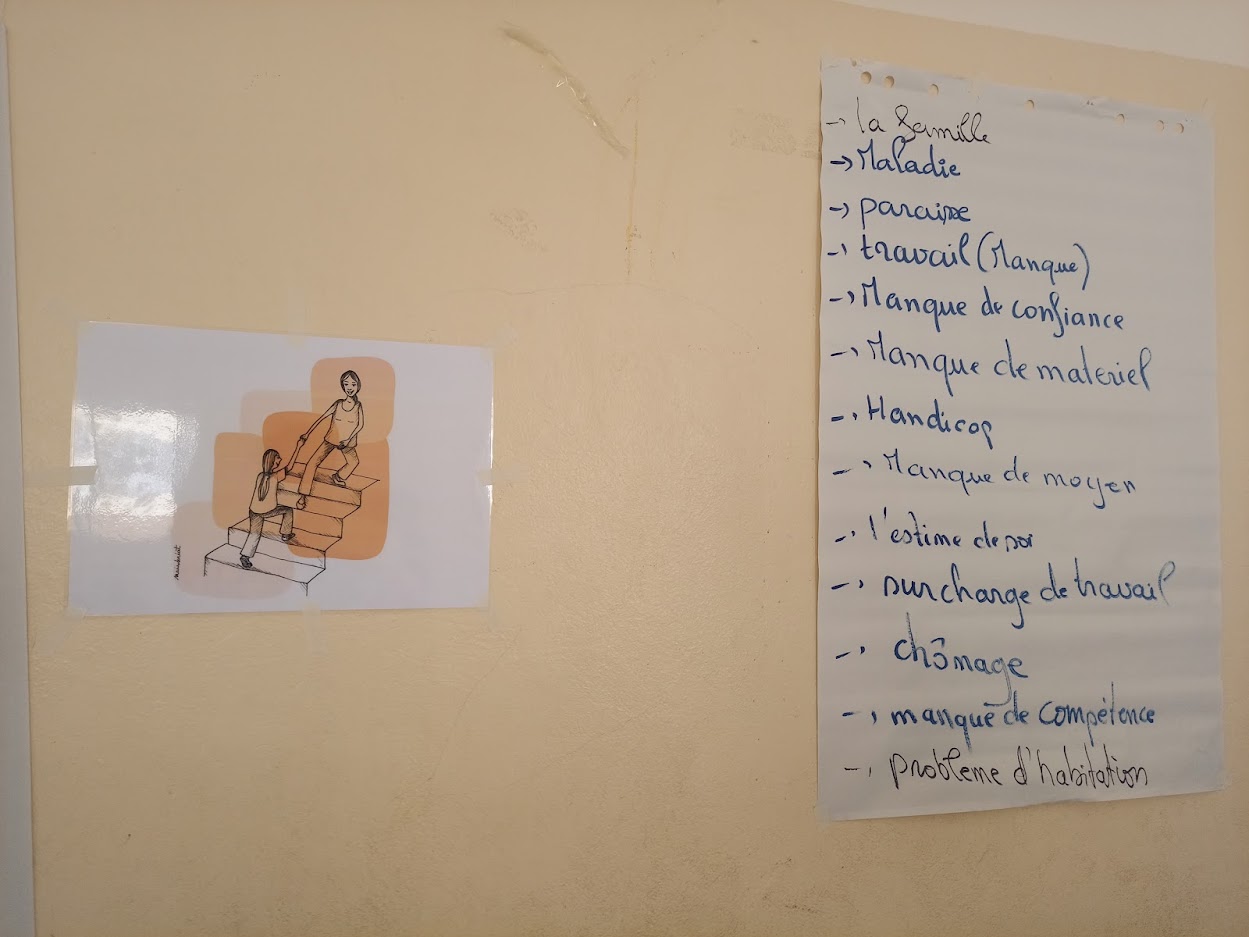 -> la famille
-> Maladie
-> paraisse
-> travail (Manque)
-> Manque de confiance
-> Manque de materiel
-> Handicap
-> Manque de moyen
-> l'estime de soi
-> surcharge de travail
-> chômage
-> manque de compétence
-> probleme d'habitation